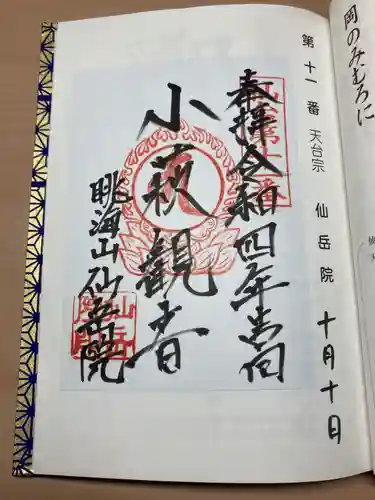 岡のみむろに
第十一番 天台宗 仙岳院 十月十日
奉拝 令和四年
小萩觀音
眺海山 仙岳院